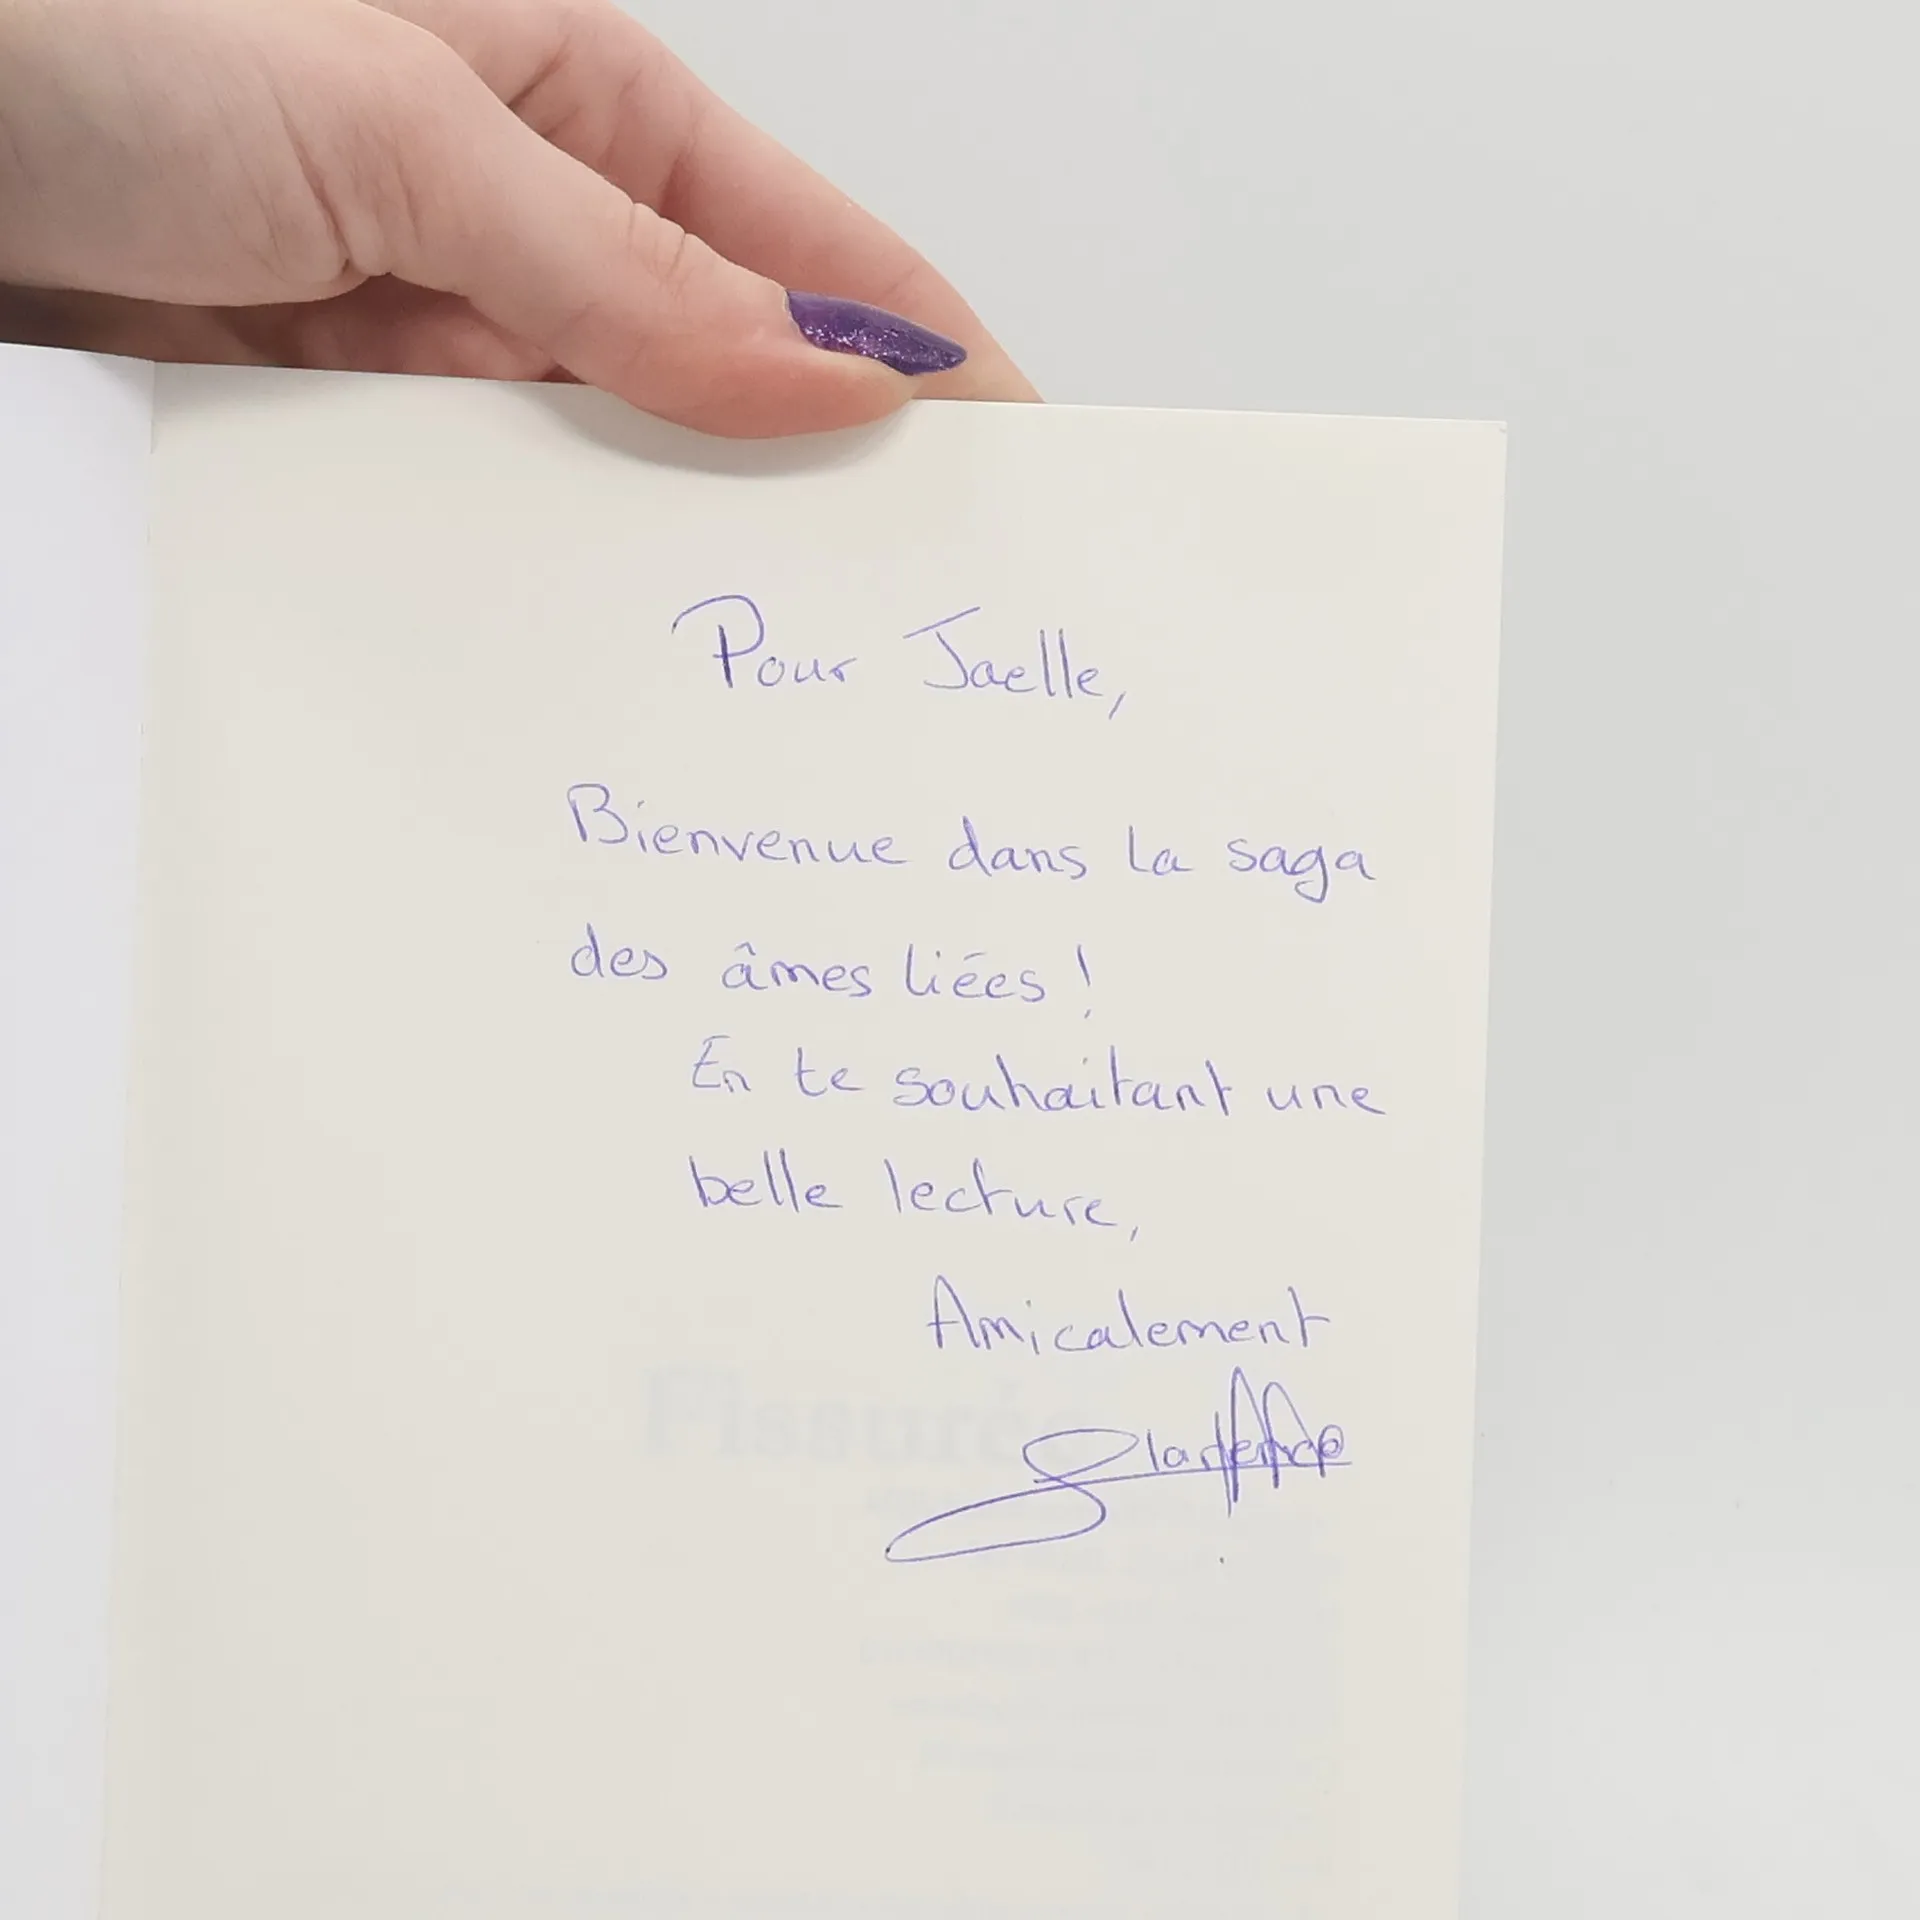 Pour Jaelle,
Bienvenue dans la saga
des âmes liées !
En te souhaitant une
belle lecture,
Amicalement